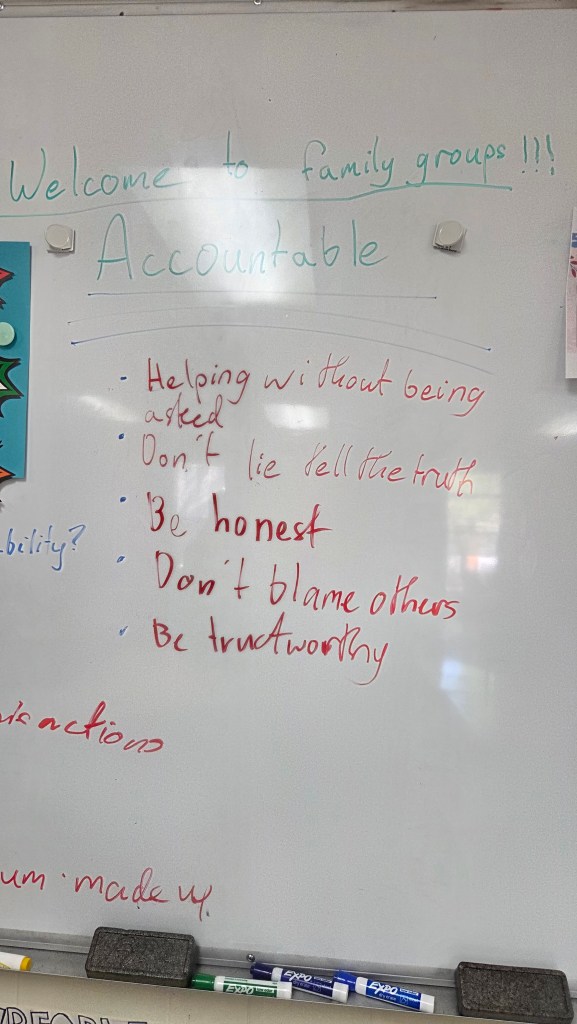 Welcome to family groups!!!
Accountable
- Helping without being
asked
• Don't lie tell the truth
• Be honest
bility?
• Don't blame others
• Be tructworthy
actions
um made up
EXPO
EXPO
EXPO